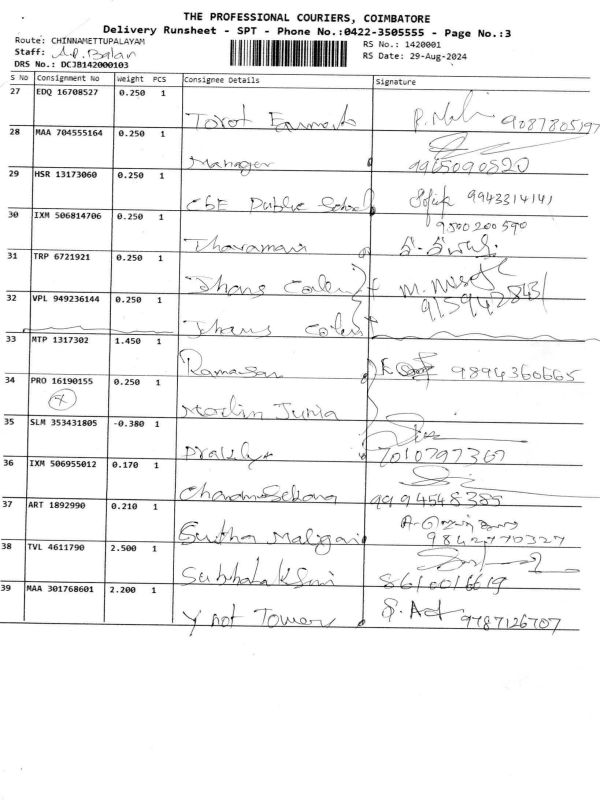 THE PROFESSIONAL COURIERS, COIMBATORE
Delivery Runsheet - SPT - Phone No.:0422-3505555 - Page No.:3
Route: CHINNAMETTUPALAYAM
RS No.: 1420001
Staff: Balan
RS Date: 29-Aug-2024
DRS No.: DCJB142000103
S No Consignment No Weight PCS Consignee Details Signature
27 EDQ 16708527 0.250 1
9087805197
28 MAA 704555164 0.250 1
Manager 9965090820
29 HSR 13173060 0.250 1
CSE Public School 9943314141
30 IXM 506814706 0.250 1 9500200590
Tharamani
31 TRP 6721921 0.250 1
Thans M.
32 VPL 949236144 0.250 1
Thans
33 MTP 1317302 1.450 1
9894360665
34 PRO 16190155 0.250 1
35 SLM 353431805 -0.380 1
7010797367
36 IXM 506955012 0.170 1
Chandrasekara 9994548385
37 ART 1892990 0.210 1
Sutha Maligai 9842770327
38 TVL 4611790 2.500 1
Subhalakshmi 8610016619
39 MAA 301768601 2.200 1
Y not Tower 9787126707